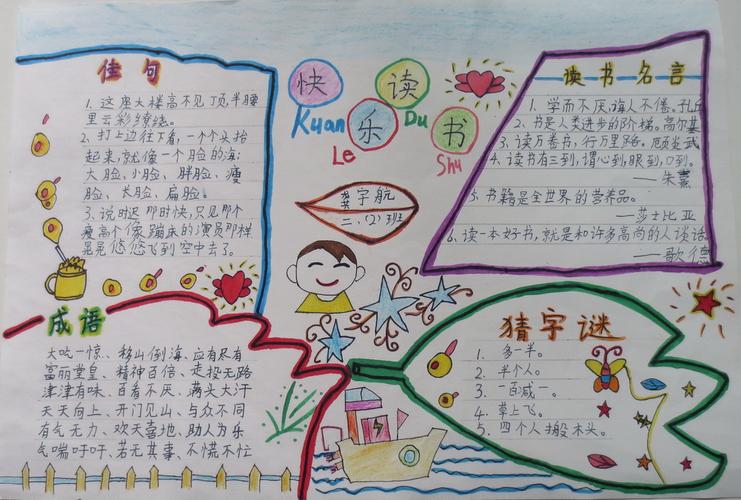 佳句
1.这座大楼高不见顶,半腰
里云彩缭绕。
2、打上边往下看,一个个头抬
起来,就像一个脸的海:
大脸、小脸、胖脸、瘦
脸、长脸、扁脸。
3、说时迟那时快,只见那个
瘦高个像蹦床的演员那样
晃晃悠悠飞到空中去了。
快
读
乐
书
Kuan
Du
Le
Shu
龚宇航
二、(2)班
读书名言
1.学而不厌,诲人不倦。孔丘
2.书是人类进步的阶梯。高尔基
3.读万卷书,行万里路。顾炎武
4.读书有三到,谓心到,眼到,口到。
——朱熹
5.书籍是全世界的营养品。
——莎士比亚
6.读一本好书,就是和许多高尚的人谈话
——歌德
成语
大吃一惊、移山倒海、应有尽有
富丽堂皇、精神百倍、走投无路
津津有味、百看不厌、满头大汗
天天向上、开门见山、与众不同
有气无力、欢天喜地、助人为乐
气喘吁吁、若无其事、不慌不忙
猜字谜
1. 多一半。
2. 半个人。
3. 一百减一。
4. 草上飞。
5. 四个人搬木头。